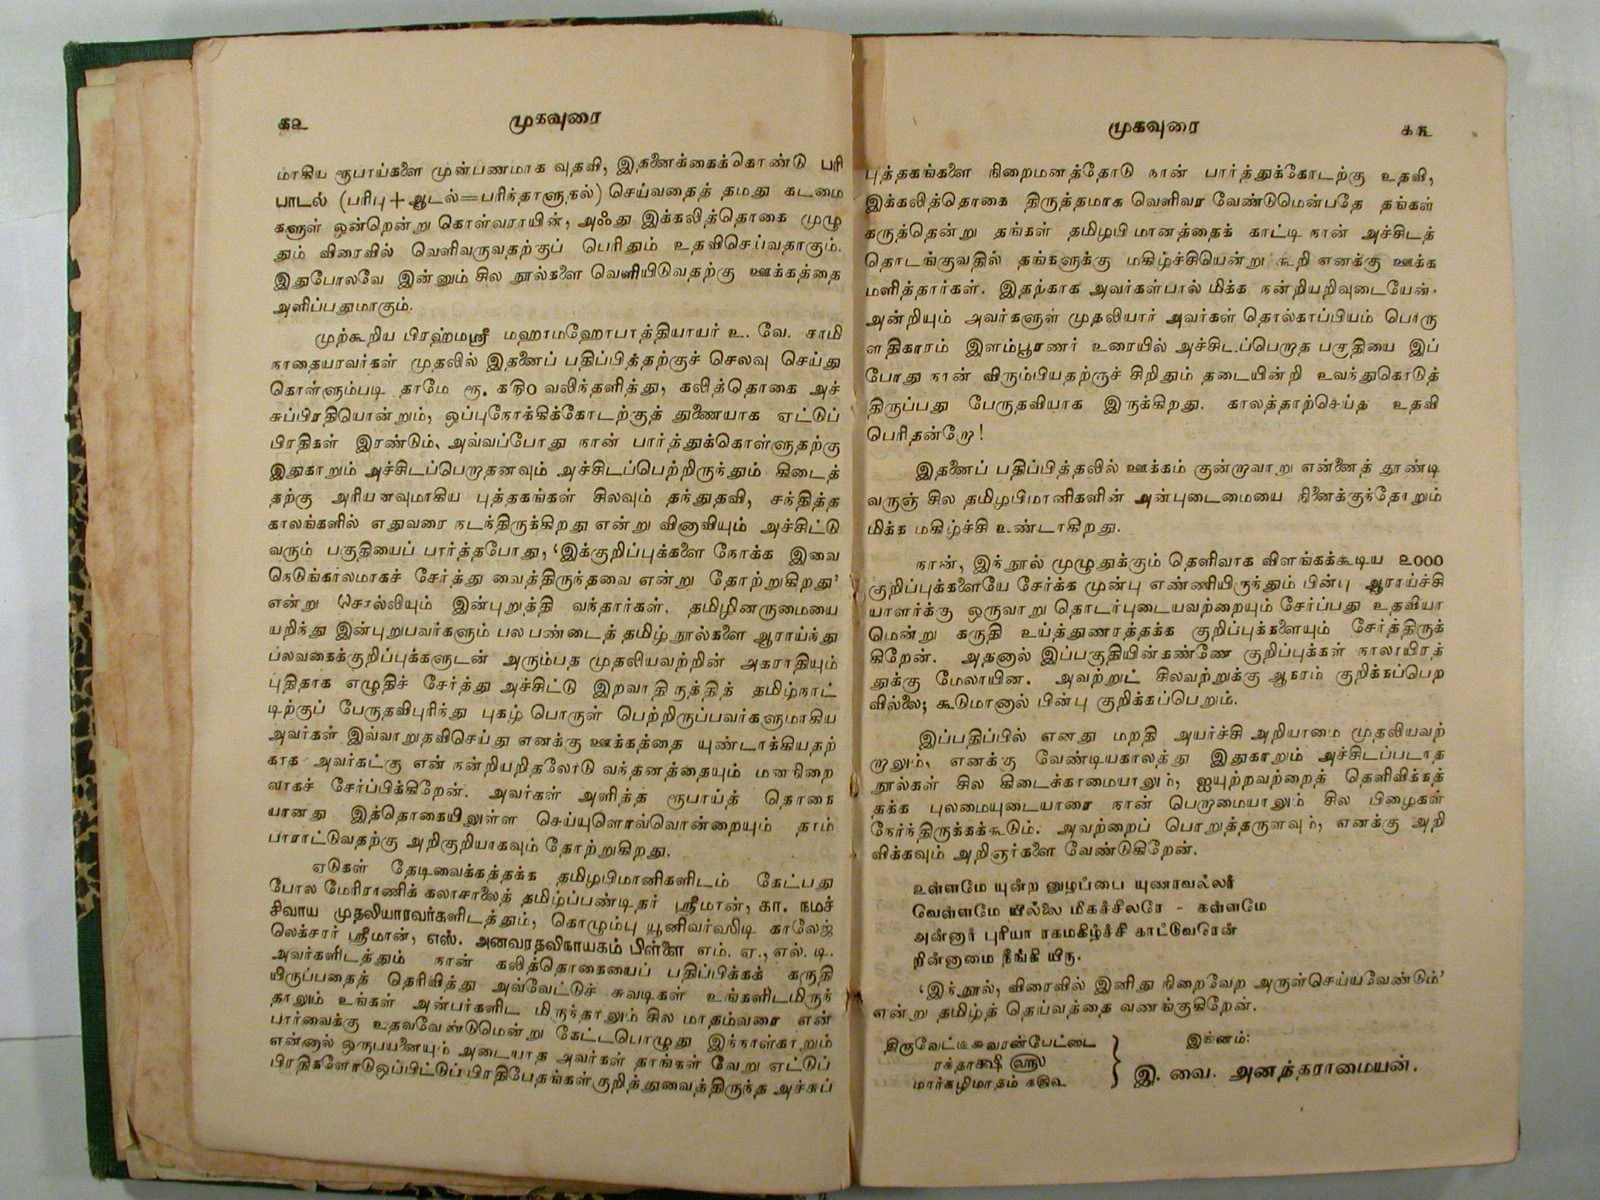 ௧௨ முகவுரை
மாகிய ரூபாய்களை முன்பணமாக வுதவி, இதனைக்கைக்கொண்டு பரி
பாடல் (பரிபு+ஆடல்=பரிந்தாளுதல்) செய்வதைத் தமது கடமை
களுள் ஒன்றென்று கொள்வராயின், அஃது இக்கலித்தொகை முழு
தும் விரைவில் வெளிவருவதற்குப் பெரிதும் உதவிசெய்வதாகும்.
இதுபோலவே இன்னும் சில நூல்களை வெளியிடுவதற்கு ஊக்கத்தை
அளிப்பதுமாகும்.
முற்கூறிய பிரஹ்மஸ்ரீ மஹாமஹோபாத்தியாயர் உ. வே. சாமி
நாதையரவர்கள் முதலில் இதனைப் பதிப்பித்தற்குச் செலவு செய்து
கொள்ளும்படி தாமே ரூ. ௧௫௦ வலிந்தளித்து, கலித்தொகை அச்
சுப்பிரதியொன்றும், ஒப்புநோக்கிக்கோடற்குத் துணையாக ஏட்டுப்
பிரதிகள் இரண்டும், அவ்வப்போது நான் பார்த்துக்கொள்ளுதற்கு
இதுகாறும் அச்சிடப்பெறாதனவும் அச்சிடப்பெற்றிருந்தும் கிடைத்
தற்கு அரியனவுமாகிய புத்தகங்கள் சிலவும் தந்துதவி, சந்தித்த
காலங்களில் எதுவரை நடந்திருக்கிறது என்று வினாவியும் அச்சிட்டு
வரும் பகுதியைப் பார்த்தபோது, ‘இக்குறிப்புக்களை நோக்க இவை
நெடுங்காலமாகச் சேர்த்து வைத்திருந்தவை என்று தோற்றுகிறது’
என்று சொல்லியும் இன்புறுத்தி வந்தார்கள். தமிழினருமையை
யறிந்து இன்புறுபவர்களும் பல பண்டைத் தமிழ் நூல்களை ஆராய்ந்து
பலவகைக்குறிப்புக்களுடன் அரும்பத முதலியவற்றின் அகராதியும்
புதிதாக எழுதிச் சேர்த்து அச்சிட்டு இறவாதிருத்தித் தமிழ்நாட்
டிற்குப் பேருதவிபுரிந்து புகழ் பொருள் பெற்றிருப்பவர்களுமாகிய
அவர்கள் இவ்வாறுதவிசெய்து எனக்கு ஊக்கத்தை யுண்டாக்கியதற்
காக அவர்கட்கு என் நன்றியறிதலோடு வந்தனத்தையும் மனநிறை
வாகச் சேர்ப்பிக்கிறேன். அவர்கள் அளித்த ரூபாய்த் தொகை
யானது இத்தொகையிலுள்ள செய்யுளொவ்வொன்றையும் தாம்
பாராட்டுவதற்கு அறிகுறியாகவும் தோற்றுகிறது.
ஏடுகள் தேடிவைக்கத்தக்க தமிழபிமானிகளிடம் கேட்பது
போல மேரிராணிக் கலாசாலைத் தமிழ்ப்பண்டிதர் ஸ்ரீமான், கா. நமச்
சிவாய முதலியாரவர்களிடத்தும், கொழும்பு யூனிவர்ஸிடி காலேஜ்
லெக்சரர் ஸ்ரீமான், எஸ். அனவரதவிநாயகம் பிள்ளை எம். ஏ., எல். டி.
அவர்களிடத்தும் நான் கலித்தொகையைப் பதிப்பிக்கக் கருதி
யிருப்பதைத் தெரிவித்து அவ்வேட்டுச் சுவடிகள் உங்களிடமிருந்
தாலும் உங்கள் அன்பர்களிட மிருந்தாலும் சில மாதம்வரை என்
பார்வைக்கு உதவவேண்டுமென்று கேட்டபொழுது இந்நாள்காறும்
என்னால் ஒருபயனையும் அடையாத அவர்கள் தாங்கள் வேறு ஏட்டுப்
பிரதிகளோடுஒப்பிட்டுப் பிரதிபேதங்கள் குறித்துவைத்திருந்த அச்சுப்
முகவுரை ௧௩
புத்தகங்களை நிறைமனத்தோடு நான் பார்த்துக்கோடற்கு உதவி,
இக்கலித்தொகை திருத்தமாக வெளிவர வேண்டுமென்பதே தங்கள்
கருத்தென்று தங்கள் தமிழபிமானத்தைக் காட்டி நான் அச்சிடத்
தொடங்குவதில் தங்களுக்கு மகிழ்ச்சியென்று கூறி எனக்கு ஊக்க
மளித்தார்கள். இதற்காக அவர்கள்பால் மிக்க நன்றியறிவுடையேன்.
அன்றியும் அவர்களுள் முதலியார் அவர்கள் தொல்காப்பியம் பொரு
ளதிகாரம் இளம்பூரணர் உரையில் அச்சிடப்பெறாத பகுதியை இப்
போது நான் விரும்பியதற்குச் சிறிதும் தடையின்றி உவந்துகொடுத்
திருப்பது பேருதவியாக இருக்கிறது. காலத்தாற்செய்த உதவி
பெரிதன்றோ!
இதனைப் பதிப்பித்தலில் ஊக்கம் குன்றாவாறு என்னைத் தூண்டி
வருஞ் சில தமிழபிமானிகளின் அன்புடைமையை நினைக்குந்தோறும்
மிக்க மகிழ்ச்சி உண்டாகிறது.
நான், இந்நூல் முழுதுக்கும் தெளிவாக விளங்கக்கூடிய ௨௦௦௦
குறிப்புக்களையே சேர்க்க முன்பு எண்ணியிருந்தும் பின்பு ஆராய்ச்சி
யாளர்க்கு ஒருவாறு தொடர்புடையவற்றையும் சேர்ப்பது உதவியா
மென்று கருதி உய்த்துணரத்தக்க குறிப்புக்களையும் சேர்த்திருக்
கிறேன். அதனால் இப்பகுதியின்கண்ணே குறிப்புக்கள் நாலாயிரத்
துக்கு மேலாயின. அவற்றுட் சிலவற்றுக்கு ஆகரம் குறிக்கப்பெற
வில்லை; கூடுமானால் பின்பு குறிக்கப்பெறும்.
இப்பதிப்பில் எனது மறதி அயர்ச்சி அறியாமை முதலியவற்
றாலும், எனக்கு வேண்டியகாலத்து இதுகாறும் அச்சிடப்படாத
நூல்கள் சில கிடைக்காமையாலும், ஐயுற்றவற்றைத் தெளிவிக்கத்
தக்க புலமையுடையாரை நான் பெறாமையாலும் சில பிழைகள்
நேர்ந்திருக்கக்கூடும். அவற்றைப் பொறுத்தருளவும், எனக்கு அறி
விக்கவும் அறிஞர்களை வேண்டுகிறேன்.
உள்ளமே யுன்ற னுழப்பை யுணரவல்லர்
வெள்ளமே யில்லை மிகச்சிலரே - கள்ளமே
அன்னார் புரியா ரகமகிழ்ச்சி காட்டுவரென்
றின்னாமை நீங்கி யிரு.
‘இந்நூல், விரைவில் இனிது நிறைவேற அருள்செய்யவேண்டும்’
என்று தமிழ்த் தெய்வத்தை வணங்குகிறேன்.
திருவேட்டீசுவரன்பேட்டை
ரக்தாக்ஷி ௵
மார்கழிமாதம்
இங்ஙனம்:
இ. வை. அனந்தராமையன்.